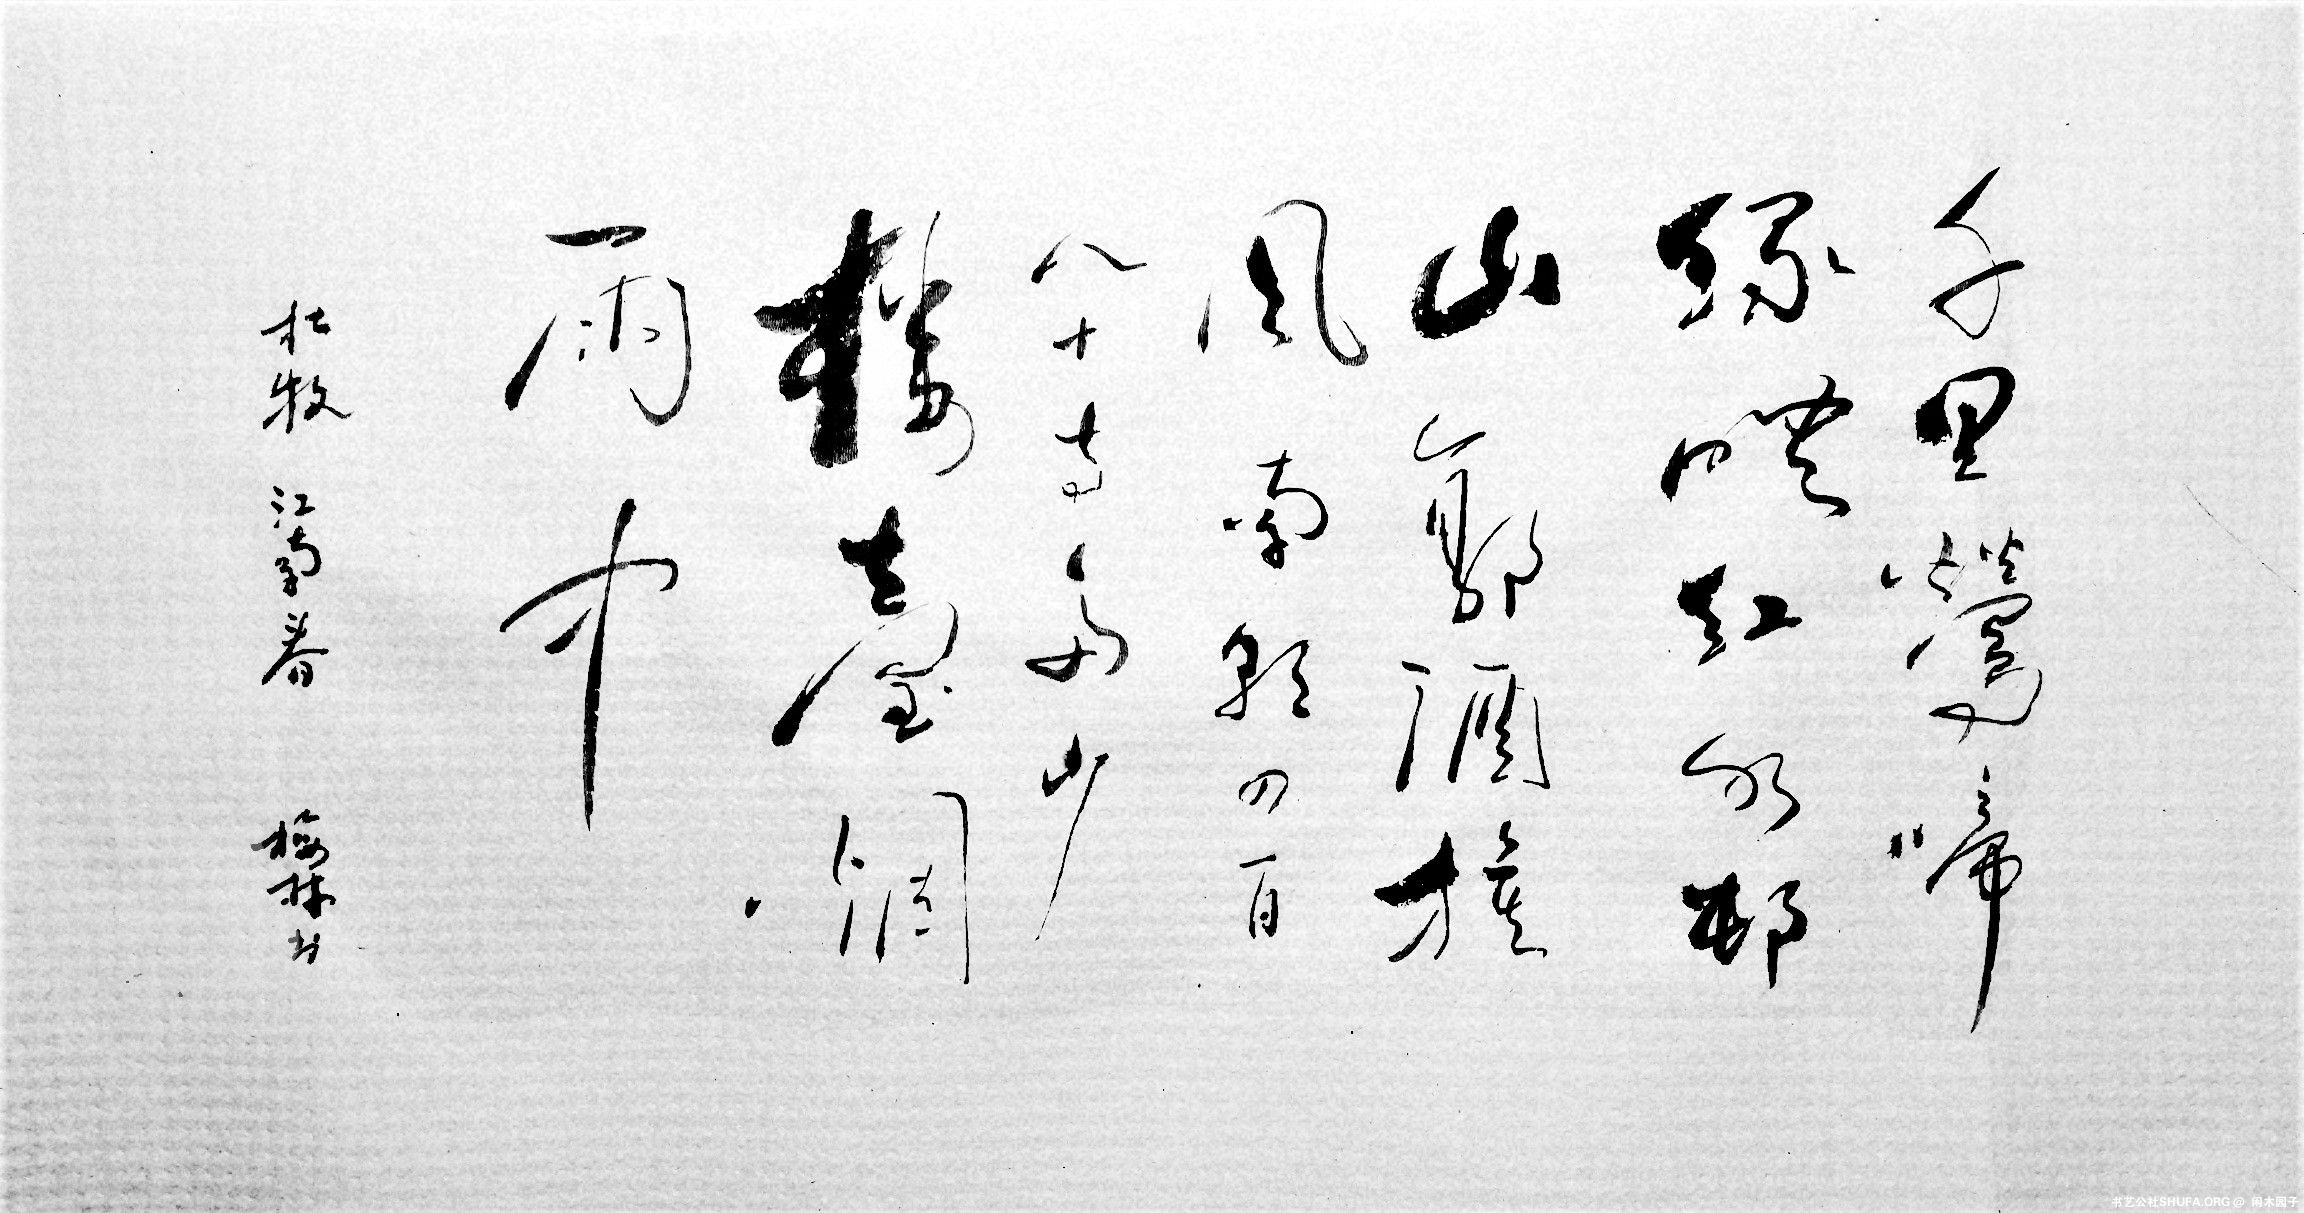 千里鶯啼
綠暎紅水邨
山郭酒旗
風南朝四百
八十寺多少
樓臺烟
雨中
杜牧 江南春 梅林书
书艺公社SHUFA.ORG @ 闲木园子